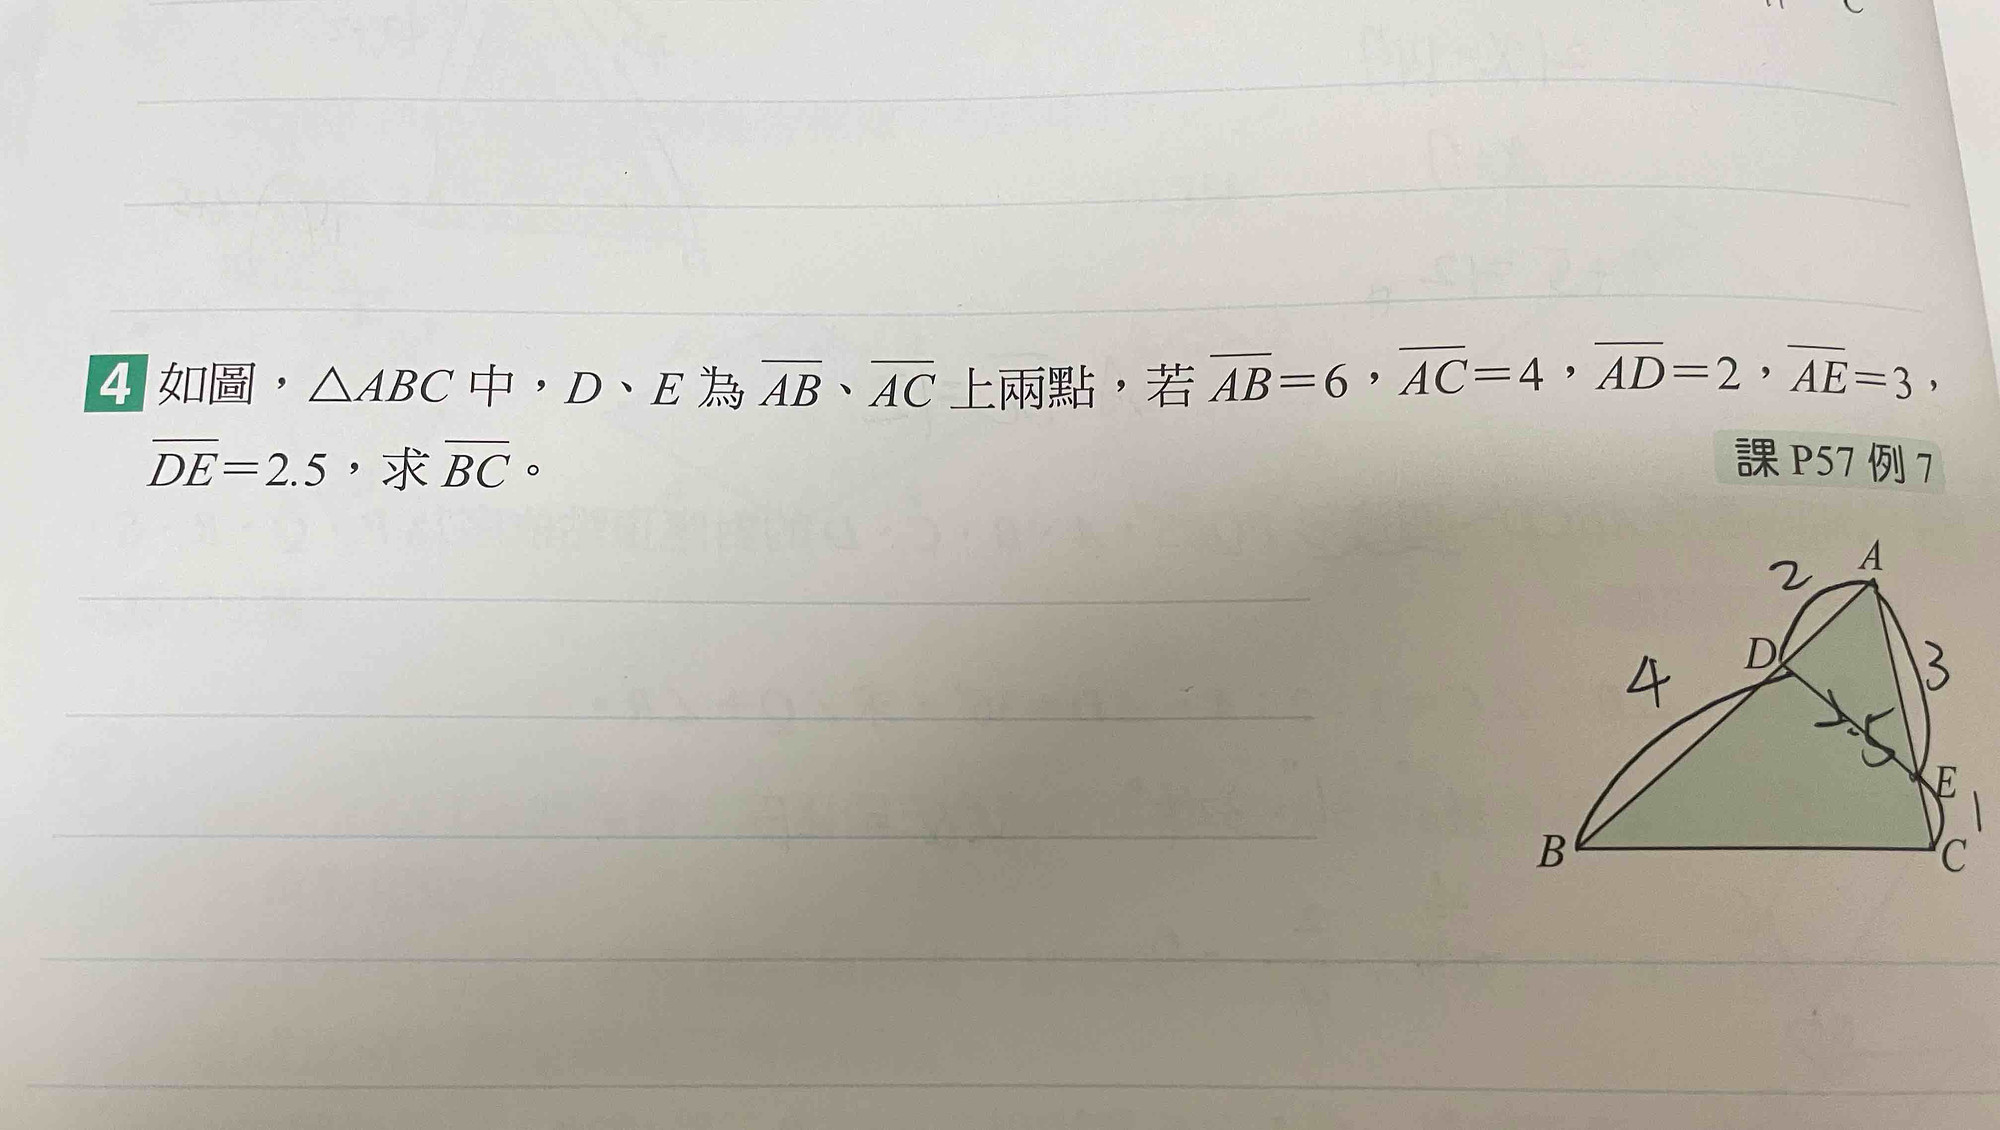 4 如圖，△ABC 中，D、E 為 AB、AC 上兩點，若 AB=6，AC=4，AD=2，AE=3，
DE=2.5，求 BC。
課 P57 例 7
A
2
D
4
3
2.5
E
1
B
C